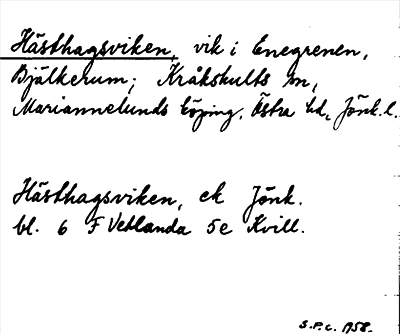 Hästhagsviken, vik i Enegrenen,
Bjälkerum; Kråkshults sn,
Mariannelunds köping, Östra hd, Jönk. l.
Hästhagsviken, ek Jönk.
bl. 6 F Vetlanda 5e Kvill.
S.P.C. 1958.